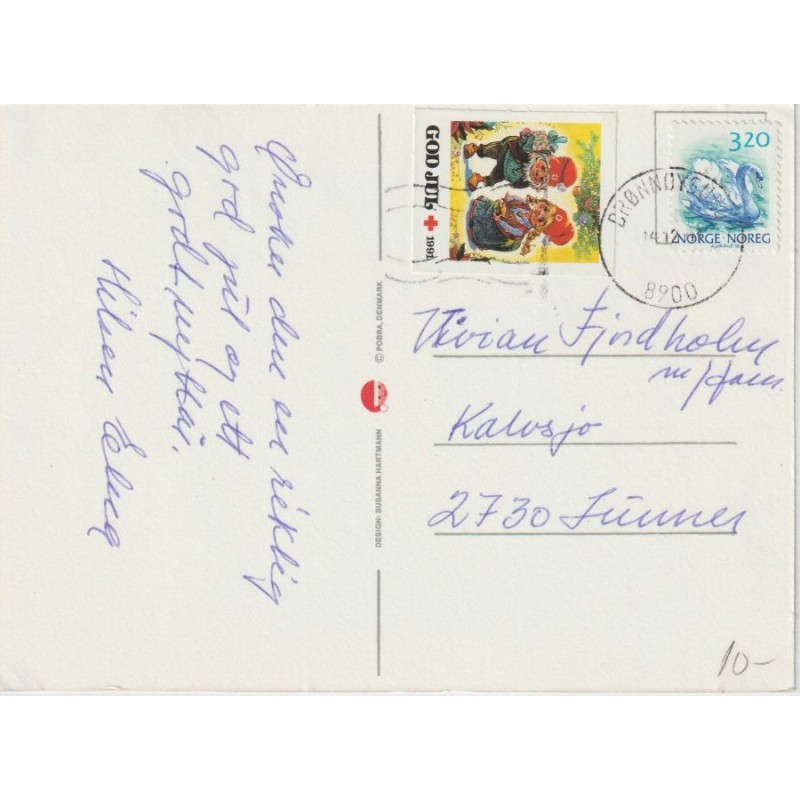 Ønsker den en riktig
god jul og ett
godt nyttår.
Hilsen
GOD JUL + 1991
3.20
NORGE · NOREG
BRØNNØYSUND
14.12
8900
© POBRA, DENMARK
DESIGN: SUSANNA HARTMANN
Vivian Fjordholm
m/fam.
Kalvsjø
2730 Lunner
10-